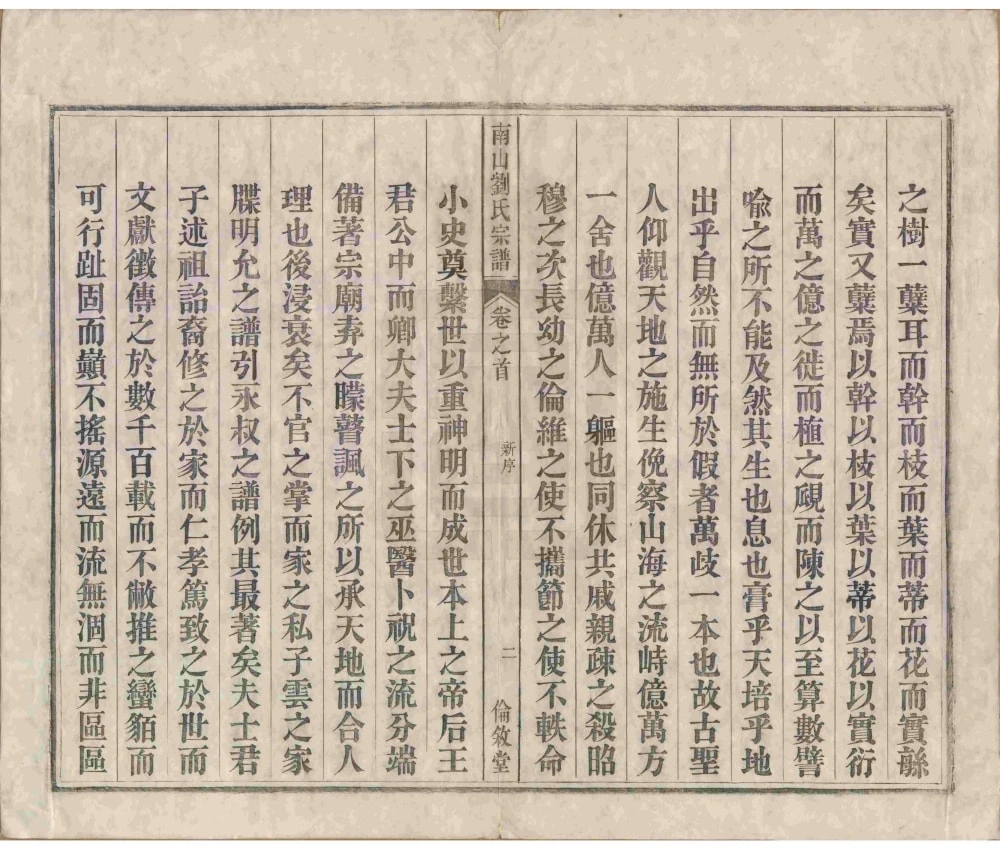 之樹一蘖耳而幹而枝而葉而蒂而花而實緜
矣實又蘖焉以幹以枝以葉以蒂以花以實衍
而萬之億之徙而植之覶而陳之以至算數譬
喻之所不能及然其生也息也膏乎天培乎地
出乎自然而無所於假者萬歧一本也故古聖
人仰觀天地之施生俛察山海之流峙億萬方
一舍也億萬人一軀也同休共戚親疎之殺昭
穆之次長幼之倫維之使不攜節之使不軼命
南山劉氏宗譜 卷之首 新序 二 倫敘堂
小史奠繫世以重神明而成世本上之帝后王
君公中而卿大夫士下之巫醫卜祝之流分端
備著宗廟弆之矇瞽諷之所以承天地而合人
理也後浸衰矣不官之掌而家之私子雲之家
牒明允之譜引永叔之譜例其最著矣夫士君
子述祖詒裔修之於家而仁孝篤致之於世而
文獻徵傳之於數千百載而不敝推之蠻貊而
可行趾固而巔不搖源遠而流無涸而非區區